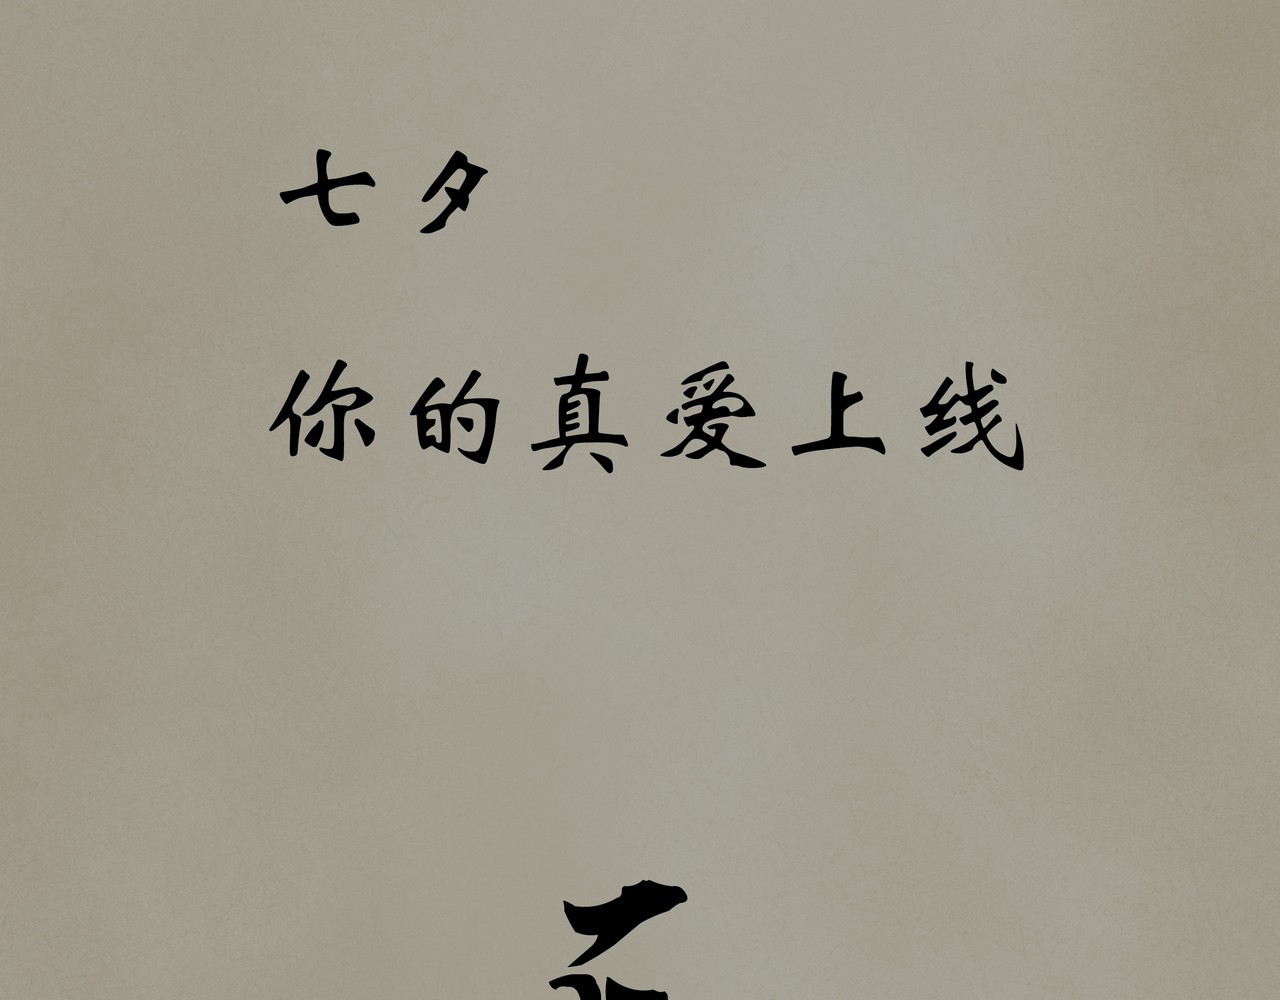 七夕
你的真爱上线